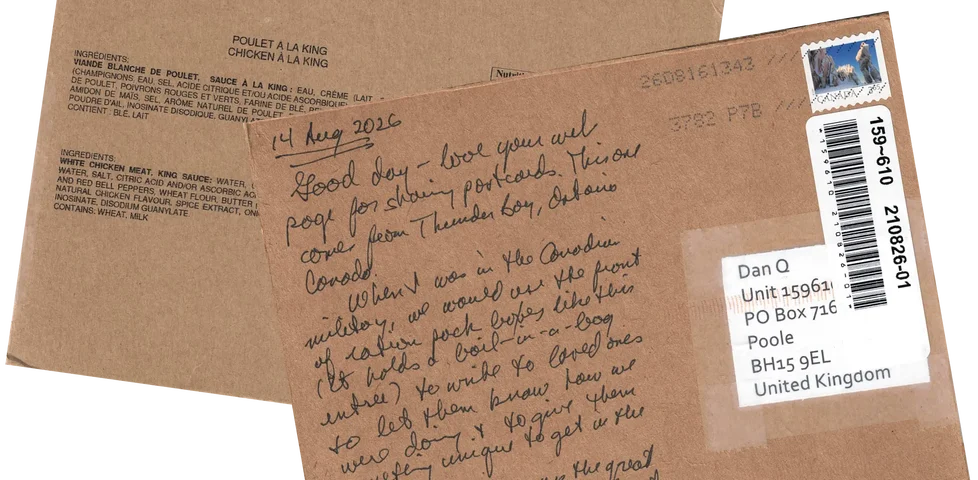 POULET A LA KING
CHICKEN À LA KING
INGRÉDIENTS:
VIANDE BLANCHE DE POULET, SAUCE À LA KING : EAU, CRÈME (LAIT
(CHAMPIGNONS, EAU, SEL, ACIDE CITRIQUE ET/OU ACIDE ASCORBIQUE)
DE POULET, POIVRONS ROUGES ET VERTS, FARINE DE BLÉ,
AMIDON DE MAÏS, SEL, ARÔME NATUREL DE POULET
POUDRE D'AIL, INOSINATE DISODIQUE,
CONTIENT : BLÉ, LAIT
INGREDIENTS:
WHITE CHICKEN MEAT, KING SAUCE: WATER,
WATER, SALT, CITRIC ACID AND/OR ASCORBIC
AND RED BELL PEPPERS, WHEAT FLOUR, BUTTER
NATURAL CHICKEN FLAVOUR, SPICE EXTRACT,
INOSINATE, DISODIUM GUANYLATE
CONTAINS: WHEAT, MILK
14 Aug 2026
Good day - love your web
page for sharing postcards. This one
comes from Thunder Bay, Ontario
Canada.
When I was in the Canadian
military, we would use the front
of ration pack boxes like this
(it holds a boil-in-a-bag
entree) to write to loved ones
to let them know how we
were doing & to give them
something unique to get in the
the great
2608161343 ///
3782 P7B ///
159~610 210826-01
Dan Q
Unit 15961
PO Box 716
Poole
BH15 9EL
United Kingdom